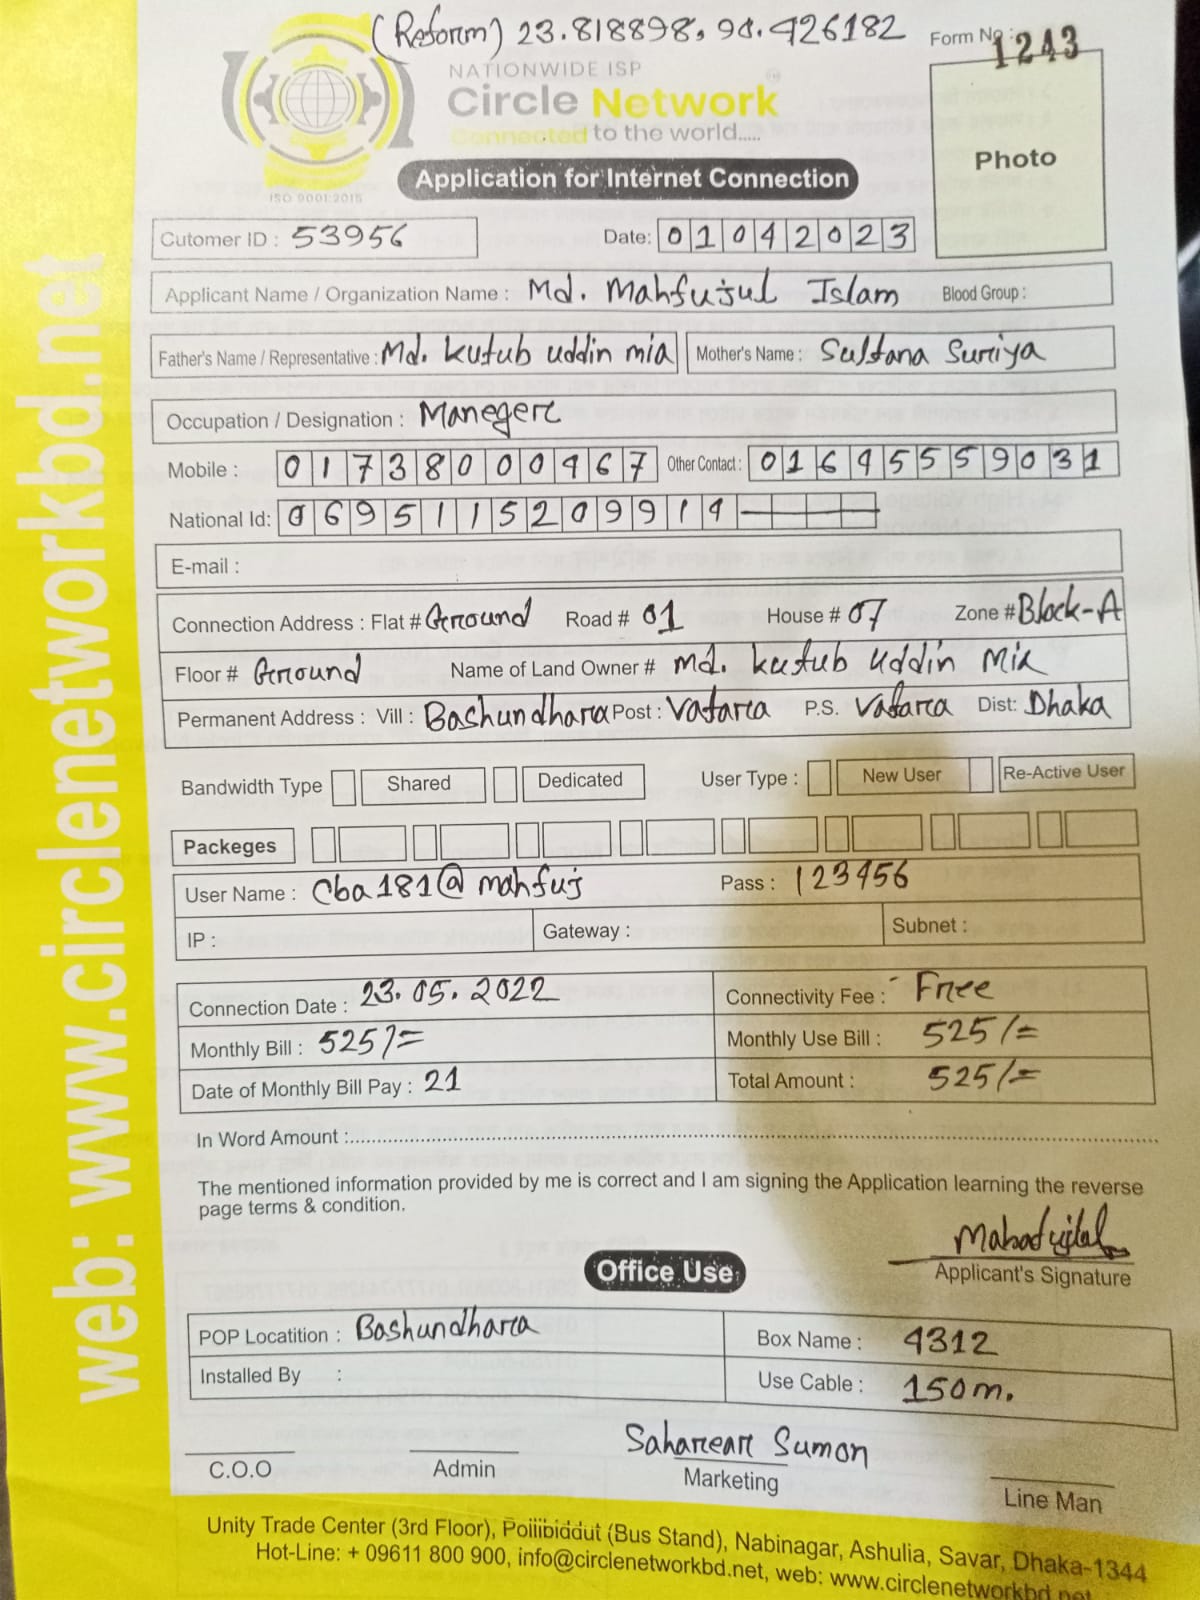 (Reform) 23.818898, 90.426182
Form No : 1243
NATIONWIDE ISP
Circle Network
Connected to the world.....
ISO 9001:2015
Photo
Application for Internet Connection
Cutomer ID : 53956 Date: 01042023
Applicant Name / Organization Name : Md. Mahfujul Islam Blood Group :
Father's Name / Representative : Md. Kutub uddin mia Mother's Name : Sultana Suriya
Occupation / Designation : Maneger
Mobile : 01738000467 Other Contact : 01645559031
National Id: 0695115209914
E-mail :
Connection Address : Flat # Ground Road # 01 House # 07 Zone # Block-A
Floor # Ground Name of Land Owner # md. kutub uddin Mia
Permanent Address : Vill : Bashundhara Post : Vatara P.S. Vatara Dist: Dhaka
Bandwidth Type Shared Dedicated User Type : New User Re-Active User
Packeges
User Name : Cba181@mahfuj Pass : 123456
IP : Gateway : Subnet :
Connection Date : 23.05.2022 Connectivity Fee : Free
Monthly Bill : 525/= Monthly Use Bill : 525/=
Date of Monthly Bill Pay : 21 Total Amount : 525/=
In Word Amount :
The mentioned information provided by me is correct and I am signing the Application learning the reverse
page terms & condition.
Applicant's Signature
Office Use
POP Locatition : Bashundhara Box Name : 4312
Installed By : Use Cable : 150m.
Saharear Sumon
C.O.O Admin Marketing Line Man
Unity Trade Center (3rd Floor), Pollibiddut (Bus Stand), Nabinagar, Ashulia, Savar, Dhaka-1344
Hot-Line: + 09611 800 900, info@circlenetworkbd.net, web: www.circlenetworkbd.net
web: www.circlenetworkbd.net